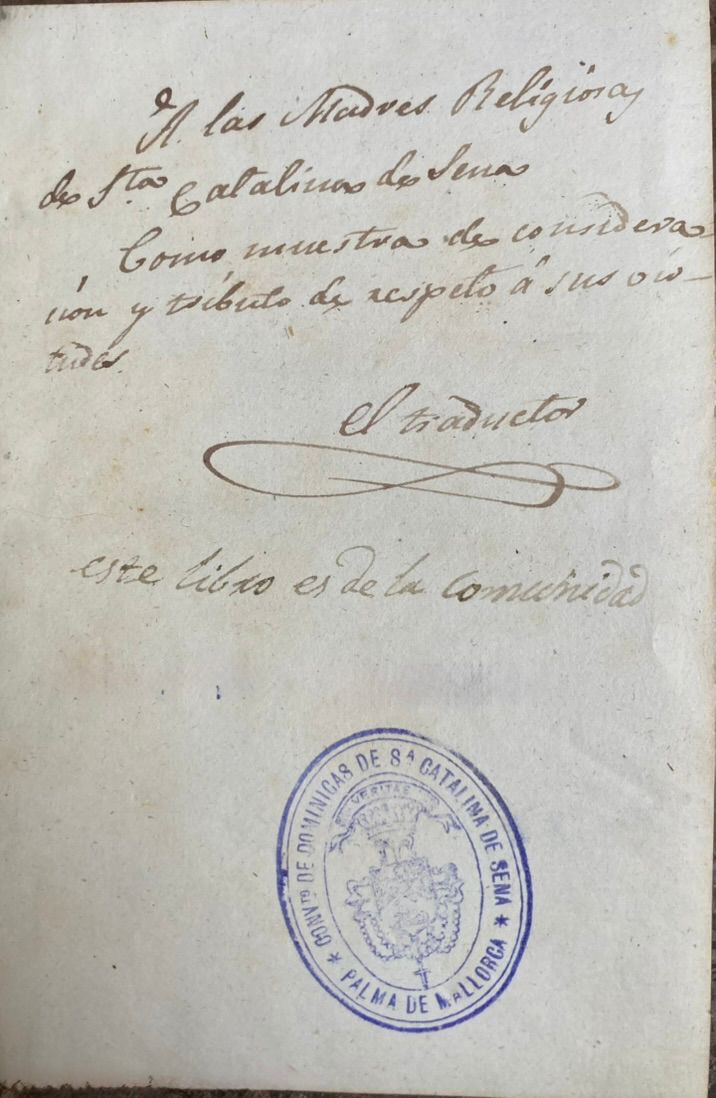 A las Madres Religiosas
de Sta. Catalina de Sena
Como muestra de considera-
ción y tributo de respeto á sus vir-
tudes.
El traductor
este libro es de la comunidad
CONVTO DE DOMINICAS DE Sª CATALINA DE SENA
VERITAS
* PALMA DE MALLORCA *